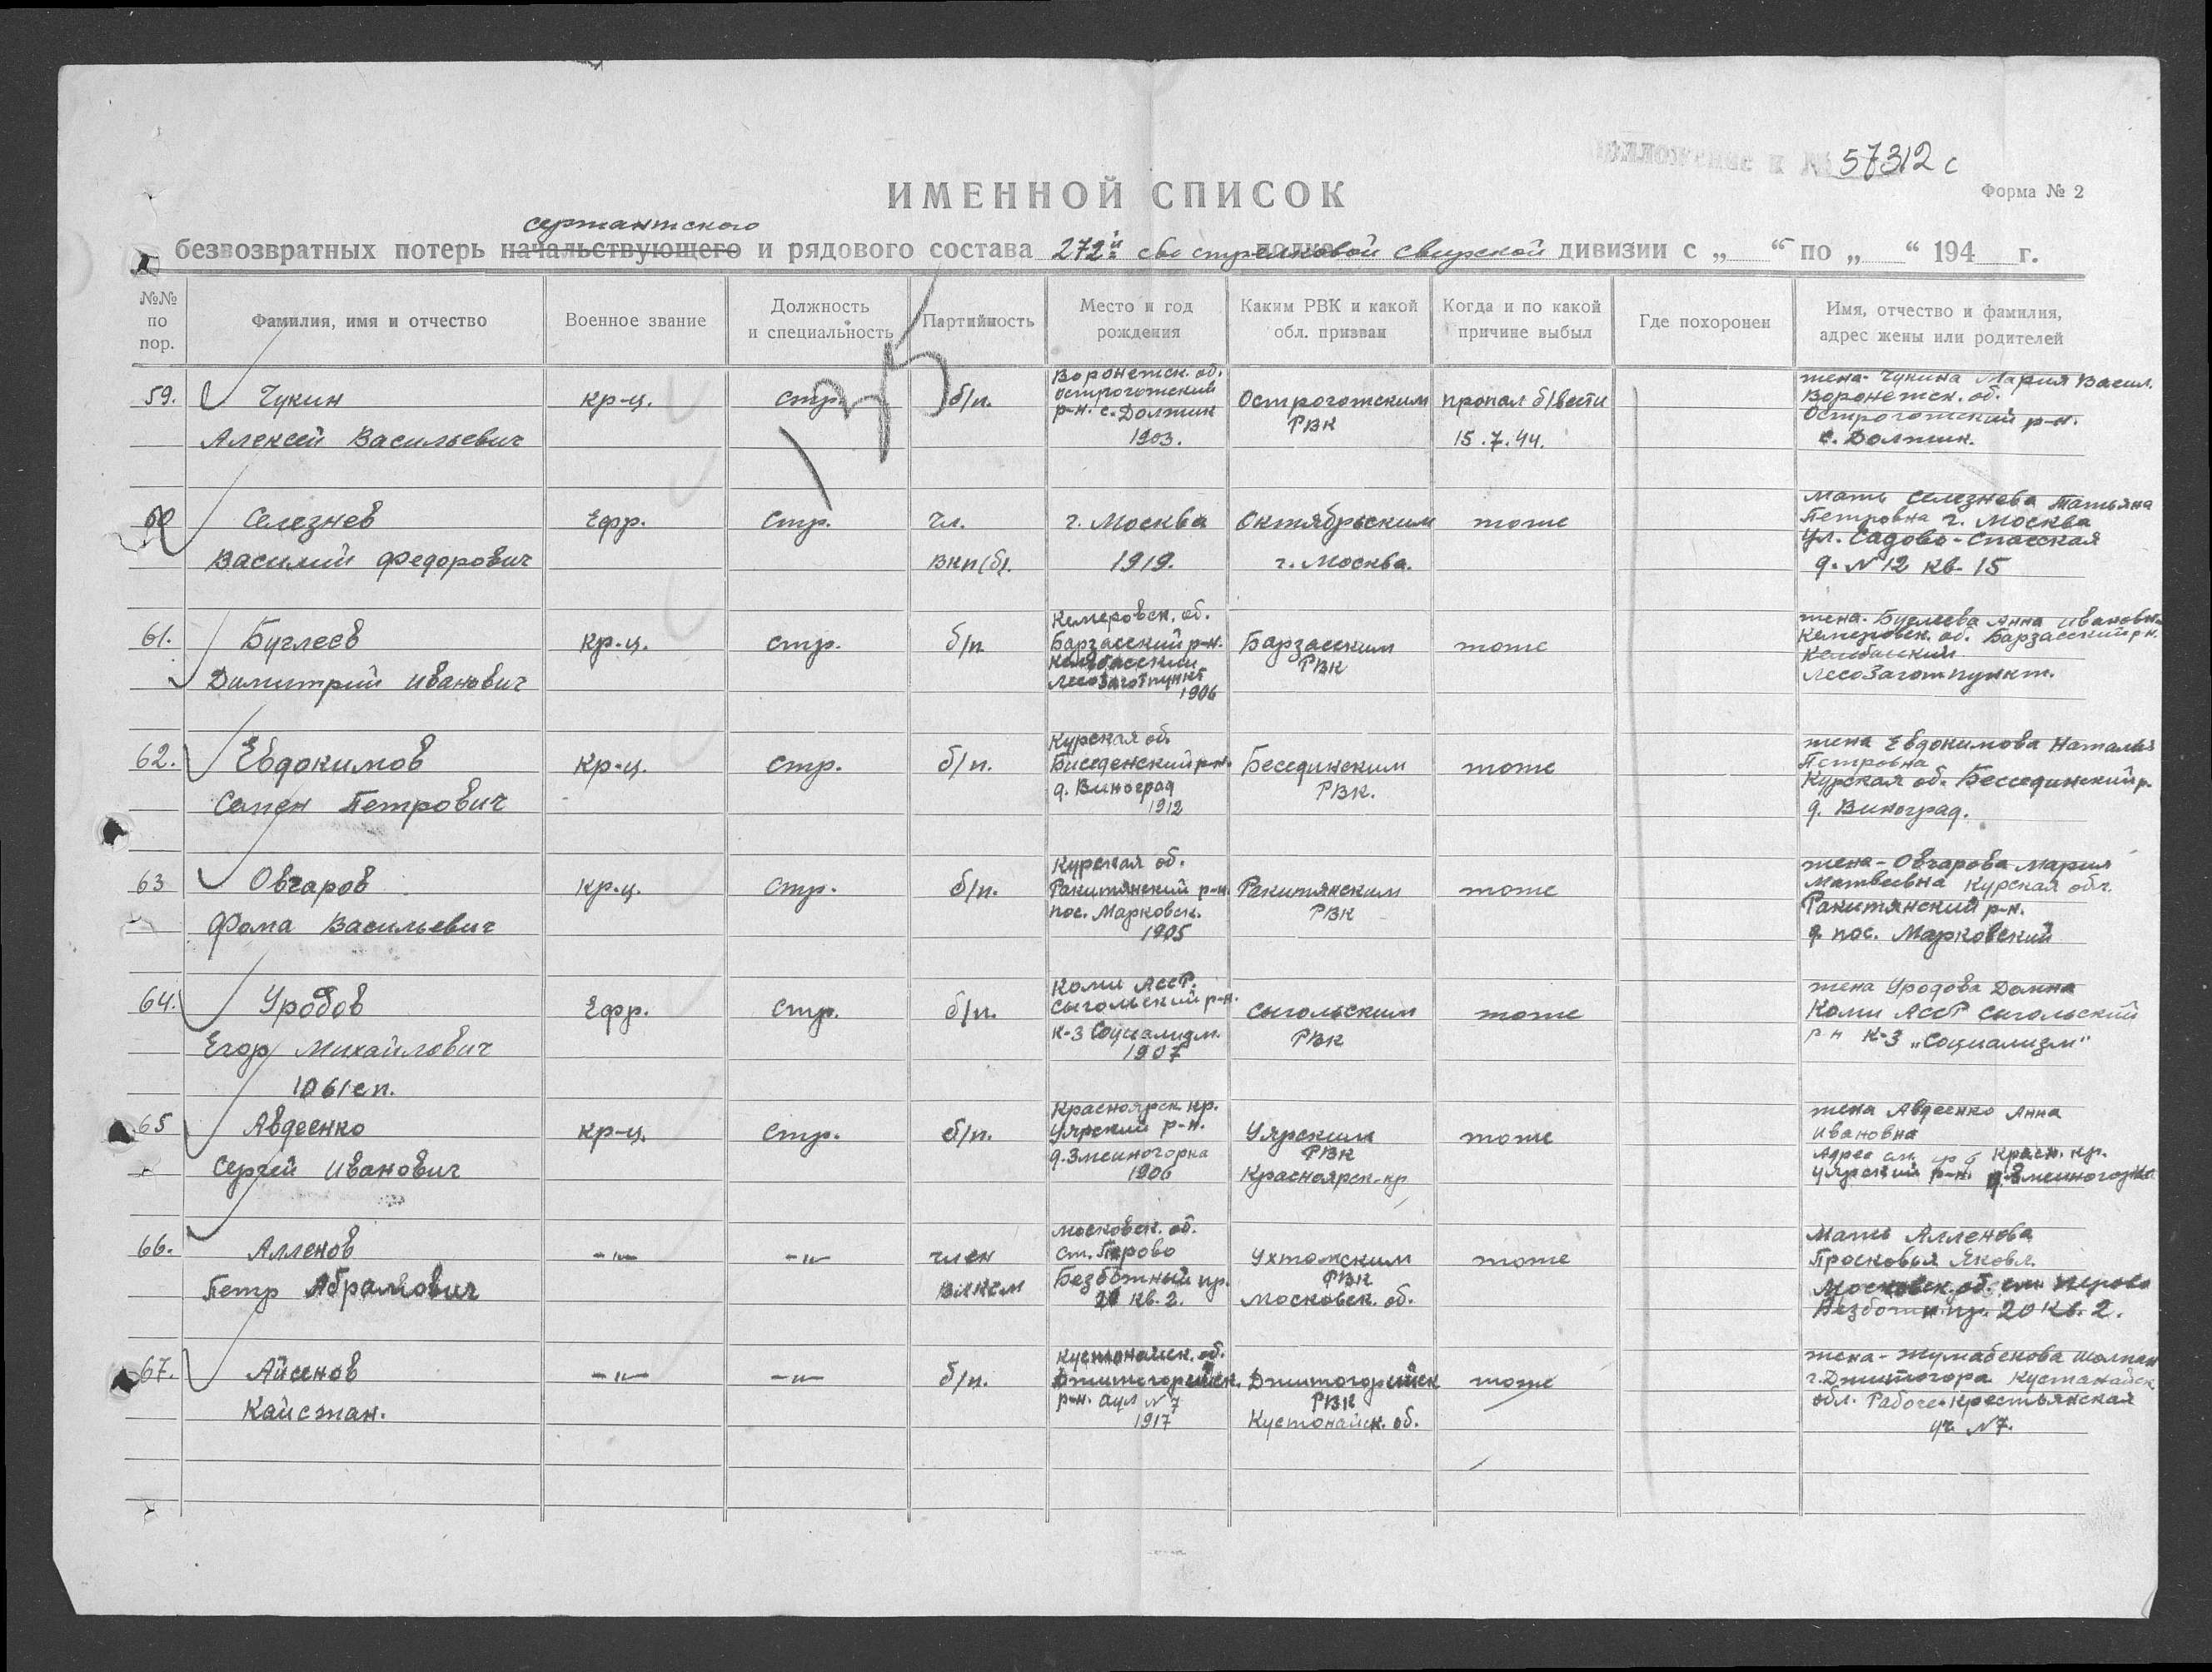 57312 с
ИМЕННОЙ СПИСОК
Форма № 2
сержантского
безвозвратных потерь начальствующего и рядового состава 272й стрелковой Свирской дивизии с „ “ по „ “ 194 г.
№№ по пор.
Фамилия, имя и отчество
Военное звание
Должность и специальность
Партийность
Место и год рождения
Каким РВК и какой обл. призван
Когда и по какой причине выбыл
Где похоронен
Имя, отчество и фамилия, адрес жены или родителей
59.
Чукин
Алексей Васильевич
кр-ц.
стр.
б/п.
Воронежск. об.
Острогожский
р-н. с. Должик
1903.
Острогожским
РВК
пропал б/вести
15.7.44.
жена- Чукина Мария Васил.
Воронежск. об.
Острогожский р-н.
с. Должик.
60
Селезнев
Василий Федорович
Ефр.
Стр.
чл.
ВКП(б).
г. Москва
1919.
Октябрьским
г. Москва.
тоже
мать Селезнева Татьяна
Петровна г. Москва
ул. Садово-Спасская
д. N 12 кв. 15
61.
Буглеев
Димитрий Иванович
кр-ц.
стр.
б/п
Кемеровск. об.
Барзасский р-н.
лесозаготпункт
1906
Барзасским
РВК
тоже
жена- Буглеева Анна Ивановн.
Кемеровск. об. Барзасский р-н.
Лесозаготпункт.
62.
Евдокимов
Семен Петрович
кр-ц.
стр.
б/п.
Курская об.
Биседенский р-н.
д. Виноград
1912
Бесединским
РВК.
тоже
жена Евдокимова Наталья
Петровна
Курская об. Бессединский р.
д. Виноград.
63
Овчаров
Фома Васильевич
кр-ц.
Стр.
б/п.
Курская об.
Ракитянский р-н.
пос. Марковск.
1905
Ракитянским
РВК
тоже
жена- Овчарова Мария
Матвеевна Курская обл.
Ракитянский р-н.
пос. Марковский
64.
Уродов
Егор Михайлович
1061 сп.
Ефр.
Стр.
б/п.
Коми АССР.
Сысольский р-н.
к-з Социализм.
1907
Сысольским
РВК
тоже
жена Уродова Домна
Коми АССР Сысольский
р-н к-з „Социализм“
65
Авдеенко
Сергей Иванович
кр-ц.
Стр.
б/п.
Красноярск. кр.
Уярский р-н.
д. Змеиногорка
1906
Уярским
РВК
Красноярск. кр
тоже
жена Авдеенко Анна
Ивановна
Красн. кр.
Уярский р-н. д. Змеиногорка
66.
Алленов
Петр Абрамович
-"-
-"-
член
ВЛКСМ
Московск. об.
ст. Перово
Безбожный пр.
20 кв. 2.
Ухтомским
РВК
Московск. об.
тоже
Мать Алленова
Просковья Яковл.
Московск. об. ст. Перово
Безбожн. пр. 20 кв. 2.
67.
Айсенов
Кайсман.
-"-
-"-
б/п.
Кустонайск. об.
Джитогоринск.
р-н. аул N 7
1917
Джитогоринск
РВК
Кустонайск. об.
тоже
жена- Жумабекова
г. Джитогора Кустанайск
обл. Рабоче-Крестьянская
N 7.